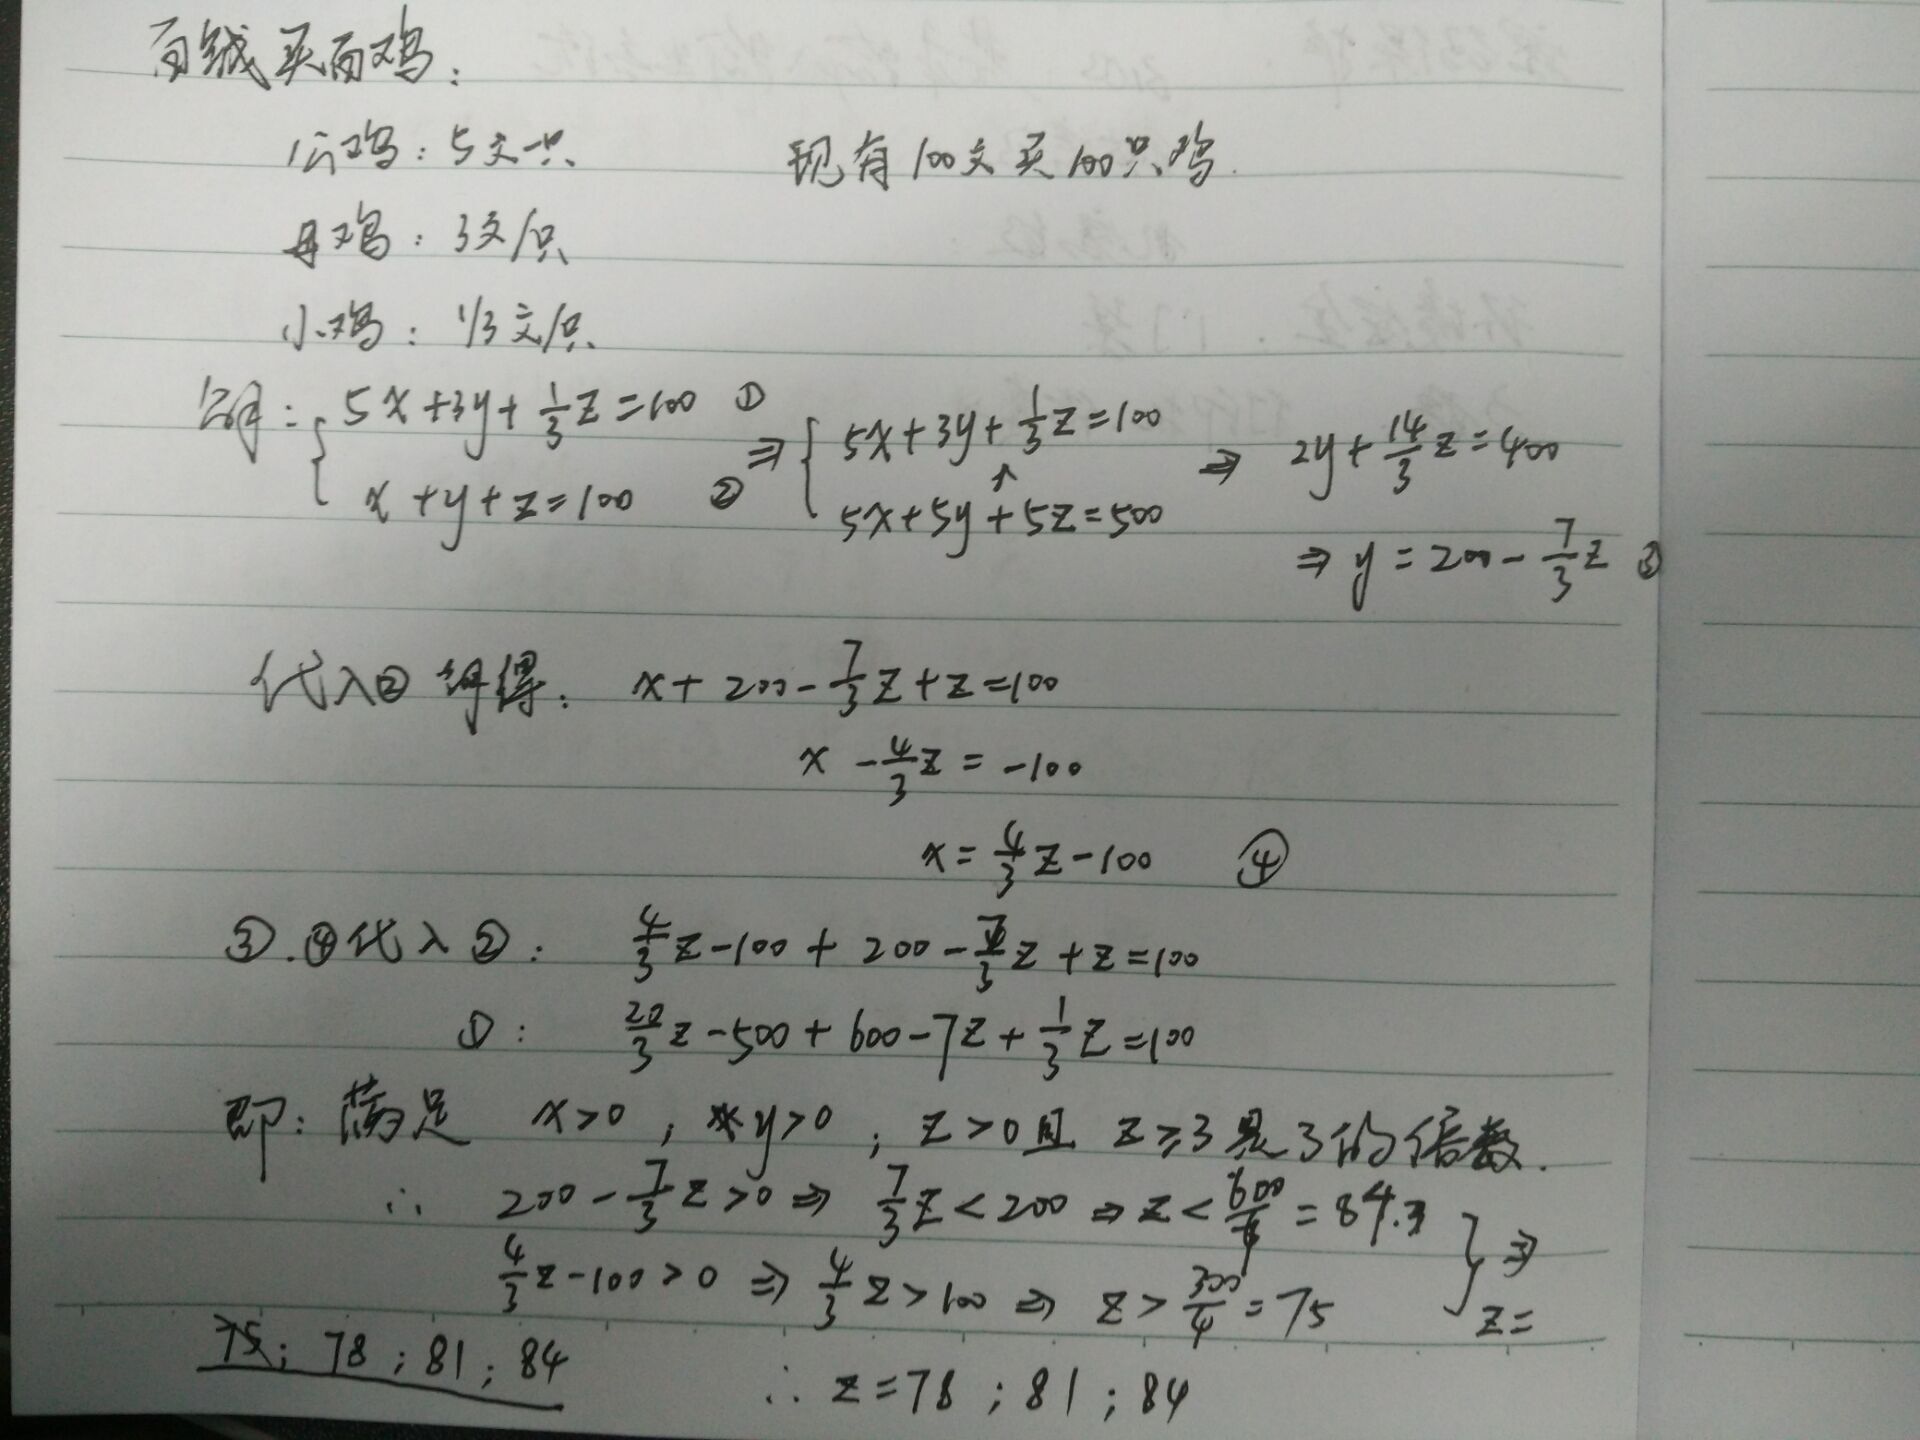 百钱买百鸡:
公鸡: 5文一只 现有100文买100只鸡.
母鸡: 3文/只
小鸡: 1/3文/只
解: { 5x+3y+1/3z=100 ① x+y+z=100 ② ⇒ { 5x+3y+1/3z=100 5x+5y+5z=500 ⇒ 2y+14/3z=400
⇒ y=200-7/3z ③
代入②解得: x+200-7/3z+z=100
x-4/3z=-100
x=4/3z-100 ④
③.④代入②: 4/3z-100+200-7/3z+z=100
①: 20/3z-500+600-7z+1/3z=100
即: 满足 x>0, y>0, z>0且 z≥3是3的倍数.
∴ 200-7/3z>0 ⇒ 7/3z<200 ⇒ z<600/7=84.3
4/3z-100>0 ⇒ 4/3z>100 ⇒ z>300/4=75 } ⇒ z=
75; 78; 81; 84
∴ z=78; 81; 84